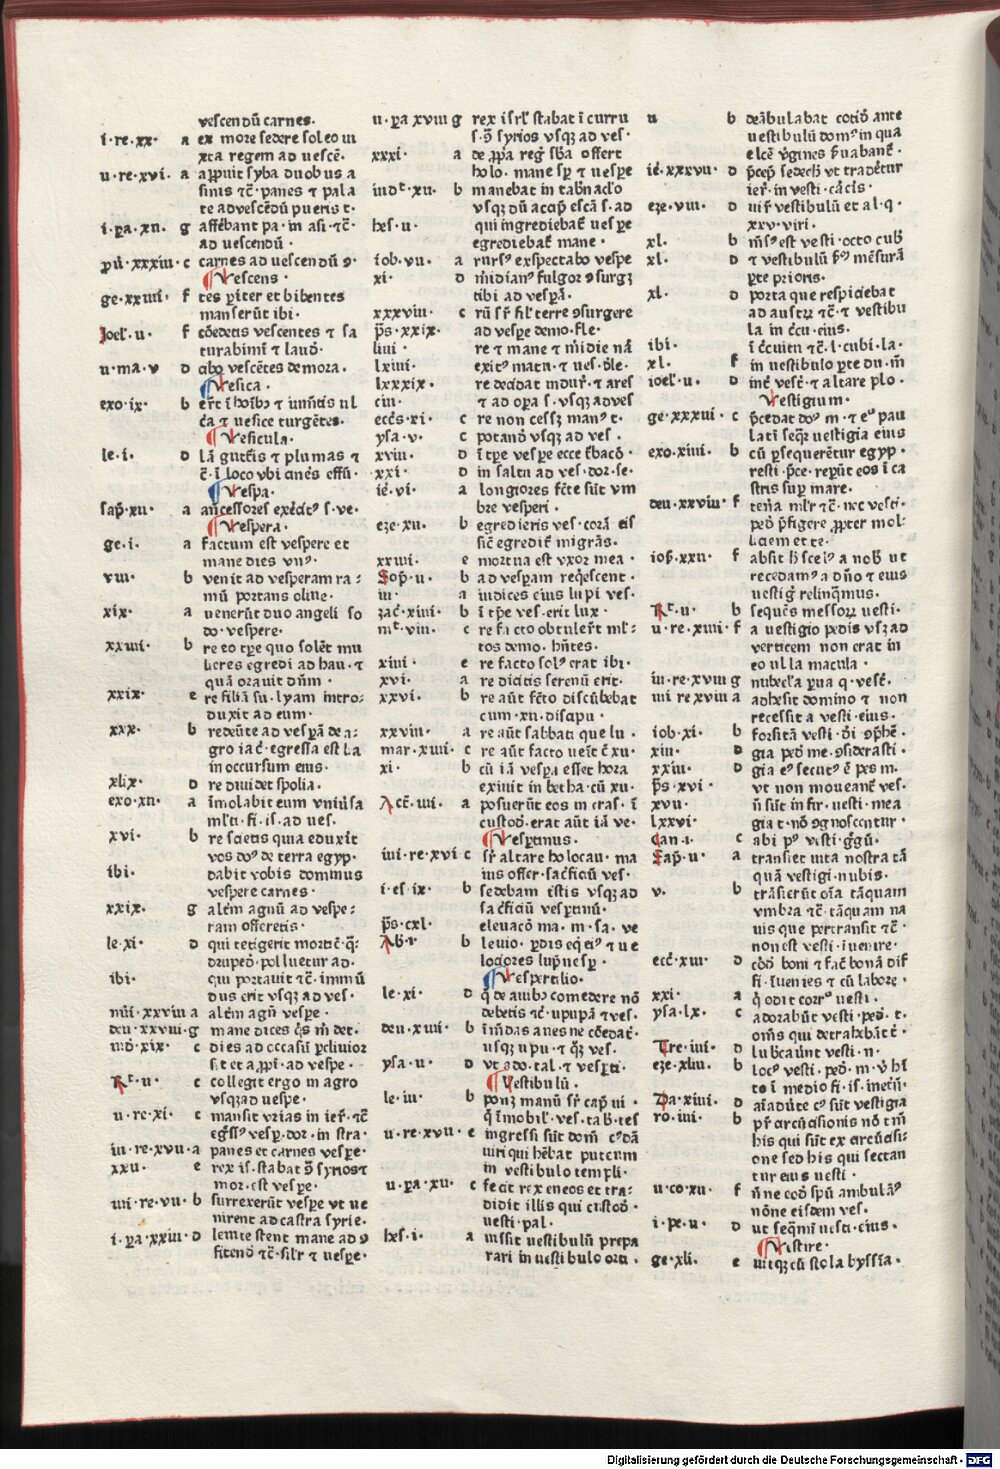 vescendū carnes.
i·re·xx· a ex more sedere soleo iu
xta regem ad uescē.
u·re·xvi· a apparuit syba duobus a
sinis ⁊c̄·panes ⁊ pala
te ad vescēdū pueris t·
i·pa·xii· g afferebant pa·in asi·⁊c̄·
ad uescendū·
xxxiii·c carnes ad uescendū
Vescens·
ge·xxiiii· f tes piter et bibentes
manserūt ibi·
Joel·u· f cōedetis vescentes ⁊ sa
turabimī ⁊ laud·
u·ma·v d abo vescētes de mora.
Vesica·
exo·ix· b
ca ⁊ uesice turgētes.
Vesicula·
le·i· d lā guttis ⁊ plumas ⁊
loco vbi cines effū·
Vespa·
sap·xii· a ancessores s·ve·
Vespera·
ge·i· a factum est vespere et
mane dies vn⁹·
viii· b venit ad vesperam ra:
mū portans oliue·
xix· a uenerūt duo angeli so
do·vespere·
xxiiii· b re eo tpe quo solēt mu
lieres egredi ad hau·⁊
quā orauit dn̄m·
xxix· e re filiā su·lyam intro:
duxit ad eum·
xxx· b redeūte ad vespā de a:
gro iac·egressa est lia
in occursum eius·
xlix· d re diuidet spolia·
exo·xii· a īmolabit eum vniūsa
ml'ti·fi·is·ad ues·
xvi· b re scietis quia eduxit
vos do⁹ de terra egyp·
ibi· dabit vobis dominus
vespere carnes·
xxix· g altem agnū ad vespe:
ram offeretis·
le·xi· d qui tetigerit
polluetur ad·
ibi· qui portauit ⁊c̄·immū
dus erit vsq ad ves·
nūi·xxviii a altem agn̄ vespe·
deu·xxviii·g mane dices det·
io·xix· c dies ad occasū procliuior
sit et a·ad vespe·
Rt·u· c collegit ergo in agro
vsq ad uespe·
u·re·xi· c mansit vrias in ier·⁊c̄
dor·in stra·
iii·re·xvii·a panes et carnes vespe·
xxii· e rex is·stabat syrios ⁊
mor·est vespe·
iiii·re·vii·b surrexerūt vespe vt ue
nirent ad castra syrie·
i·pa·xxiii·d leuite stent mane ad
⁊c̄·silr ⁊ uespe·
u·pa xviii g rex isrl' stabat ī curru
syrios vsq ad ves·
xxxi· a offert
holo·mane sp ⁊ uespe
iudt·xii· b manebat in tabnaclo
vsq dū accip escā s·ad
hes·u· qui ingrediebat uespe
egrediebat mane·
iob·vii· a rursus expectabo vespe
xi· d fulgor
tibi ad vespā·
xxxviii· c filˉ terre surgere
ps·xxix· ad vespe demo·fle·
liui· re ⁊ mane ⁊ midie nā
lxiiii· matu·⁊ ues·dle·
lxxxix· re decidat indur·⁊ ares
ciii· ⁊ ad opa s·vsq ad ves
ecces·xi· c re non cesset man⁹ t·
ysa·v· c potando vsq ad ves·
xviii· d ī tpe vespe ecce tbacō·
xxi· d in saltu ad ves·dor·se·
iē·vi· a longiores fcte sūt vm
bre vesperi·
eze·xii· b egredieris ves·corā eis
sic̄ migrās·
xxiiii· e mortua est vxor mea·
Sop·u· b ad vespam reqescent·
iii· a iudices eius lupi ves·
zac·xiiii· b ī tpe ves·erit lux·
mt·viii· c re facto obtulert ml':
tos demo·hn̄tes·
xiiii· e re facto sol⁹ erat ibi·
xvi· a re dicitis serenū erit·
xxvi· b re aūt fcto discūbebat
cum·xii·discipu·
xxviii· a re aūt sabbati que lu·
mar·xiiii· c re aūt facto ueit c̄ xii·
xi· b cū iā vespa esset hora
exiuit in betha·cū xii·
Act·iiii· a posuerūt eos in cras·ī
custod·erat aūt iā ve·
Vesptinus·
iiii·re·xvi c sr altare holocau·ma
ius offer·sacficiū ves·
i·es·ix· b sedebam mestis vsq ad
sacficiū vesptinū·
ps·cxl· eleuacō ma·m·sa·ve
Ab·i· b leuio·pdis ⁊ ue
lociores lup uesp·
Vespertilio·
le·xi· d q de auib⁹ comedere nō
debetis ⁊c̄·upupā ⁊ves·
deu·xiiii· b īmūdas aues ne cōedat·
usq upu·⁊ ves·
ysa·ii· d vt ado·tal·⁊ vespti·
Vestibulū·
le·iii· b ponz manū sr cap ui·
q īmobil'·ves·tab·tes
u·re·xvii·e ingressi sūt
uiri qui hēbat puteum
in vestibulo templi·
u·pa·xii· c fecit rex eneos et tra:
didit illis qui custod·
uesti·pal·
hes·i· a iussit uestibulū prepa
rari in uestibulo orti·
u b deābulabat cotid ante
uestibulū dom⁹ in qua
vgines
iē·xxxvii· d sedech vt traderetur
ier·in vesti·cācis·
eze·viii· d uir vestibulū et al·q·
xxv·viri·
xl· b est vesti·octo cub
xl· d ⁊ vestibulū mēsurā
pte prioris·
xl· d porta que respiciebat
ad austr ⁊c̄·⁊ vestibu
la in ccu·eius·
ibi· ī ccuitu ⁊c̄·l·cubi·la·
xl· f in uestibulo pte du·m̄
ioel·u· d int ⁊ altare plo·
Vestigium·
ge·xxxiii· c pcedat do⁹ m·⁊ pau
latī uestigia eius
exo·xiiii· b cū psequerētur egyp·
resti·pce·repūt eos ī ca
stris sup mare·
deu·xxviii·f tenā ml'r ⁊c̄·nec vesti·
ped pfigere ppter mol:
liciem et te·
iop·xxii· f absit h scel⁹ a nob ut
recedam⁹ a dn̄o ⁊ eius
uestig relinqmus·
Rt·u· b sequēs messorz uesti·
u·re·xiiii·f a uestigio pedis vsz ad
verticem non erat in
eo ulla macula·
iii·re·xviii g nubecl'a pua q·vest·
iiii re xviii a adhesit domino ⁊ non
recessit a vesti·eius·
iob·xi· b forsitā vesti·
xiii· d gia ped me·siderasti·
xxiii· d gia secut⁹ ē pes m·
ps·xvi· vt non moueant ves·
xvii· n̄ sūt infir·uesti·mea
lxxvi· gia t·nō gnoscentur·
Can·i· c abi vesti·ggū·
Sap·u· a transiet uita nostra tā
quā vestigi·nubis·
v· b trāsierūt oīa tāquam
vmbra ⁊c̄·tāquam na
uis que pertransit ⁊c̄·
non est vesti·iuenire·
ecc·xiii· d boni ⁊ fac bonā dif
fi·īuenies ⁊ cū labore·
xxi· a q odit uesti·
ysa·lx· c adorabūt vesti·ped·t·
oms qui detrahebāt t·
Tre·iiii· d lubcaūnt vesti·n·
eze·xliii· b loc⁹ vesti·ped·m·
to ī medio fi·is·
Da·xiiii· d aiadute sūt vestigia
ro·iiii· b pr arcūcisionis nō tm̄
his qui sūt ex arcūcisi:
one sed his qui sectan
tur eius uesti·
u·co·xii· f n̄ne eod spū ambulā⁹
nōne eisdem ves·
i·pe·u· d ut seqmi uesti·eius·
Vestire·
ge·xli· e uitqz eū stola byssīa·
Digitalisierung gefördert durch die Deutsche Forschungsgemeinschaft - DFG